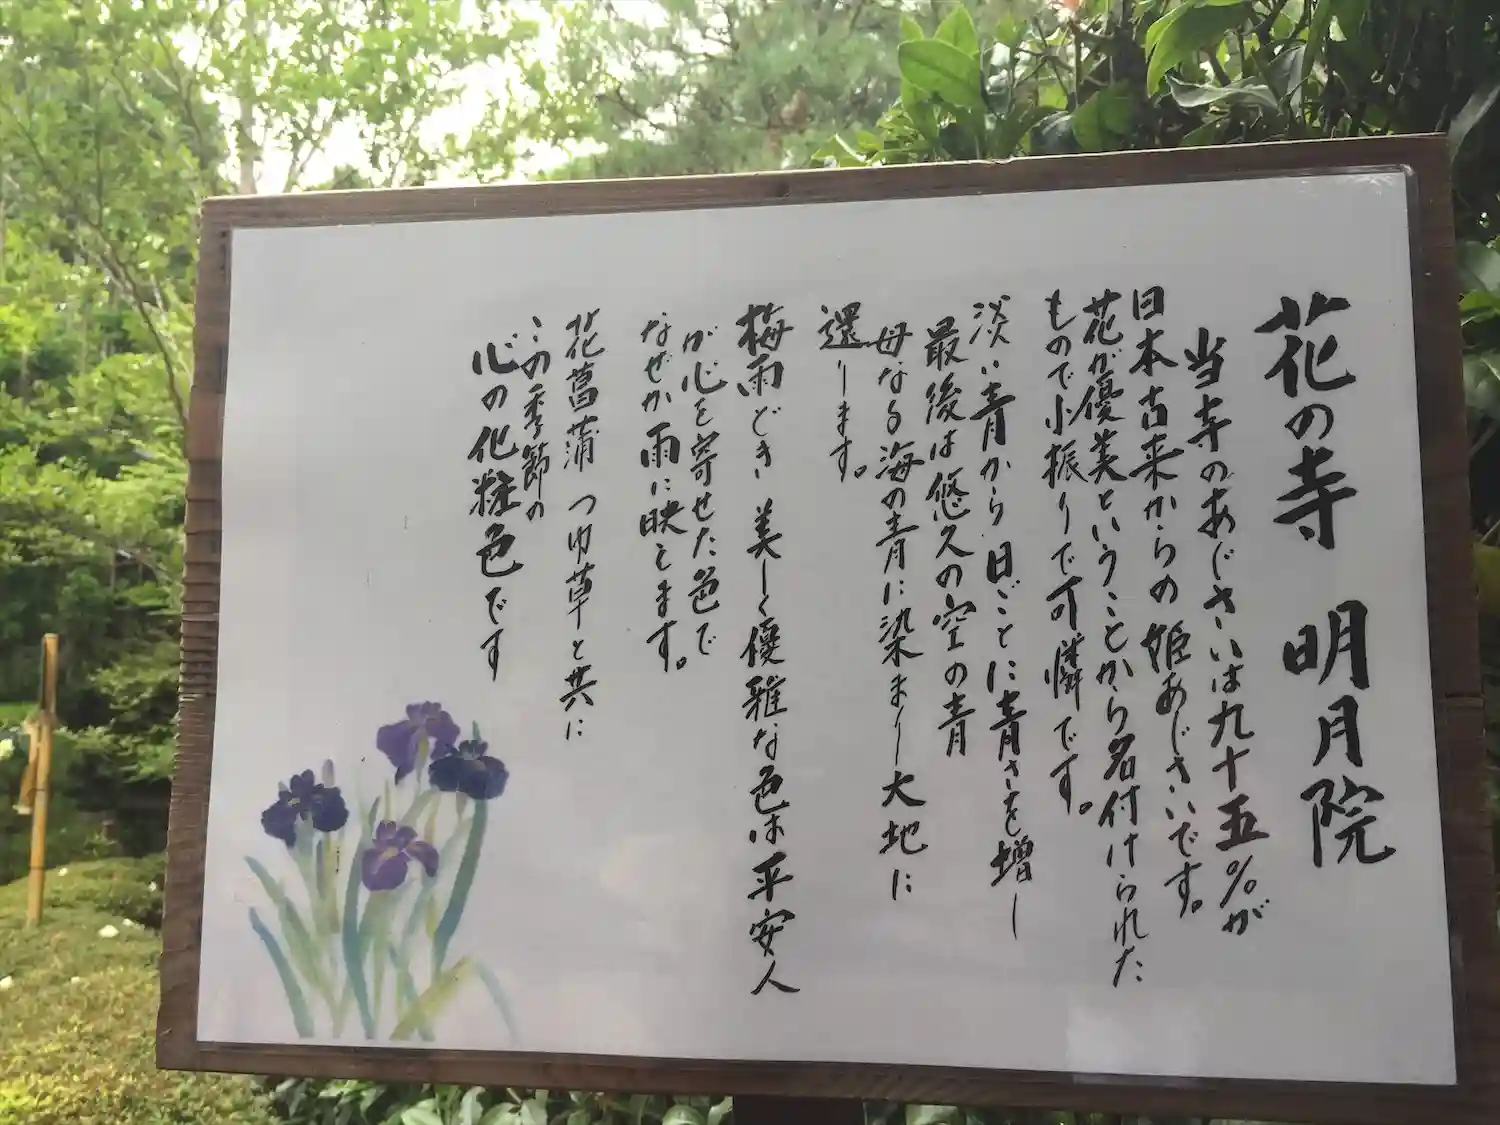 花の寺 明月院
当寺のあじさいは九十五%が
日本古来からの姫あじさいです。
花が優美ということから名付けられた
もので小振りで可憐です。
淡い青から日ごとに青さを増し
最後は悠久の空の青
母なる海の青に染まし大地に
還します。
梅雨どき美しく優雅な色は平安人
が心を寄せた色で
なぜか雨に映えます。
花菖蒲 つゆ草と共に
この季節の
心の化粧色です